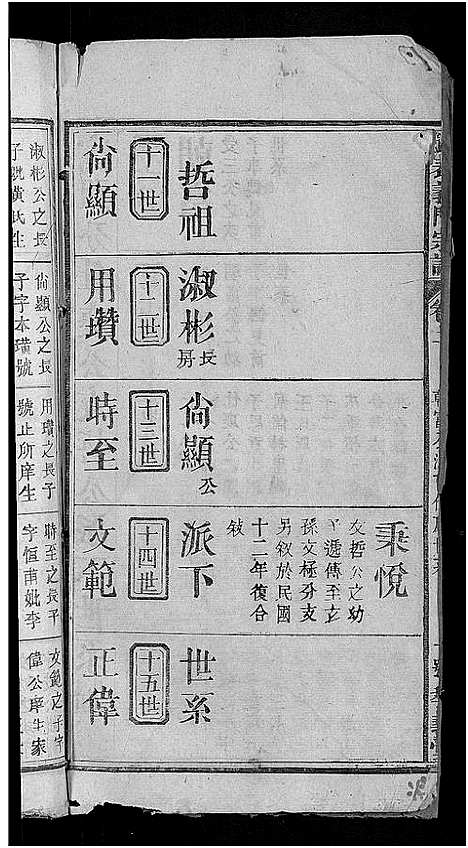 秉悅
友哲公之幼
子遞傳至玄
孫文極分支
另叙於民國
十二年復合
敍
哲祖
淑彬長房
尙顯公
派下
世系
十一世
十二世
十三世
十四世
十五世
尙顯
用瓚
時至
文範
正偉
淑彬公之長
子 黃氏生
尙顯公之長
子字本璜號
用瓚之長子
號止所庠生
時至之長子
字恒甫妣李
文範之子字
偉公庠生家